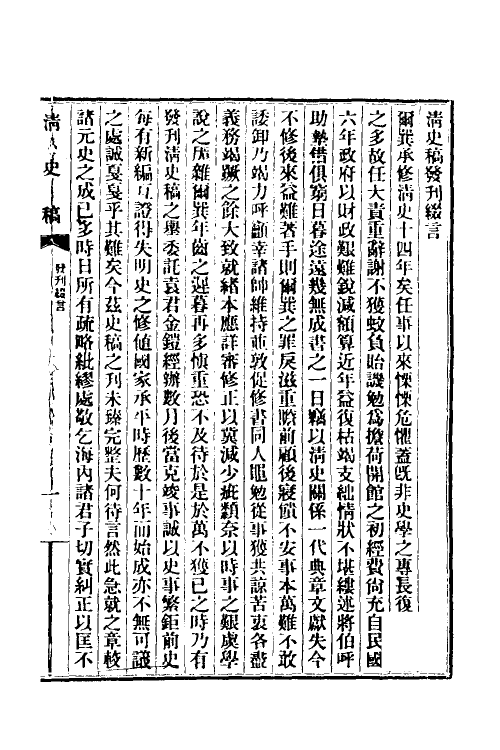 清史稿發刊綴言
爾巽承修清史十四年矣任事以來慄慄危懼蓋旣非史學之專長復
之多故任大責重辭謝不獲蚊負貽譏勉爲擔荷開館之初經費尙充自民國
六年政府以財政艱難銳減額算近年益復枯竭支絀情狀不堪縷述將伯呼
助墊借俱窮日暮途遠幾無成書之一日竊以清史關係一代典章文獻失今
不修後來益難著手則爾巽之罪戾滋重瞻前顧後寢饋不安事本萬難不敢
諉卸乃竭力呼籲幸諸帥維持並敦促修書同人黽勉從事獲共諒苦衷各盡
義務竭蹶之餘大致就緒本應詳審修正以冀減少疵纇奈以時事之艱虞學
說之厖雜爾巽年齒之遲暮再多慎重恐不及待於是於萬不獲已之時乃有
發刊清史稿之舉委託袁君金鎧經辦數月後當克竣事誠以史事繁鉅前史
每有新編互證得失明史之修値國家承平時歷數十年而始成亦不無可議
之處誠戞戞乎其難矣今茲史稿之刊未臻完整夫何待言然此急就之章較
諸元史之成已多時日所有疏略紕繆處敬乞海內諸君子切實糾正以匡不
清史稿
發刊綴言
一